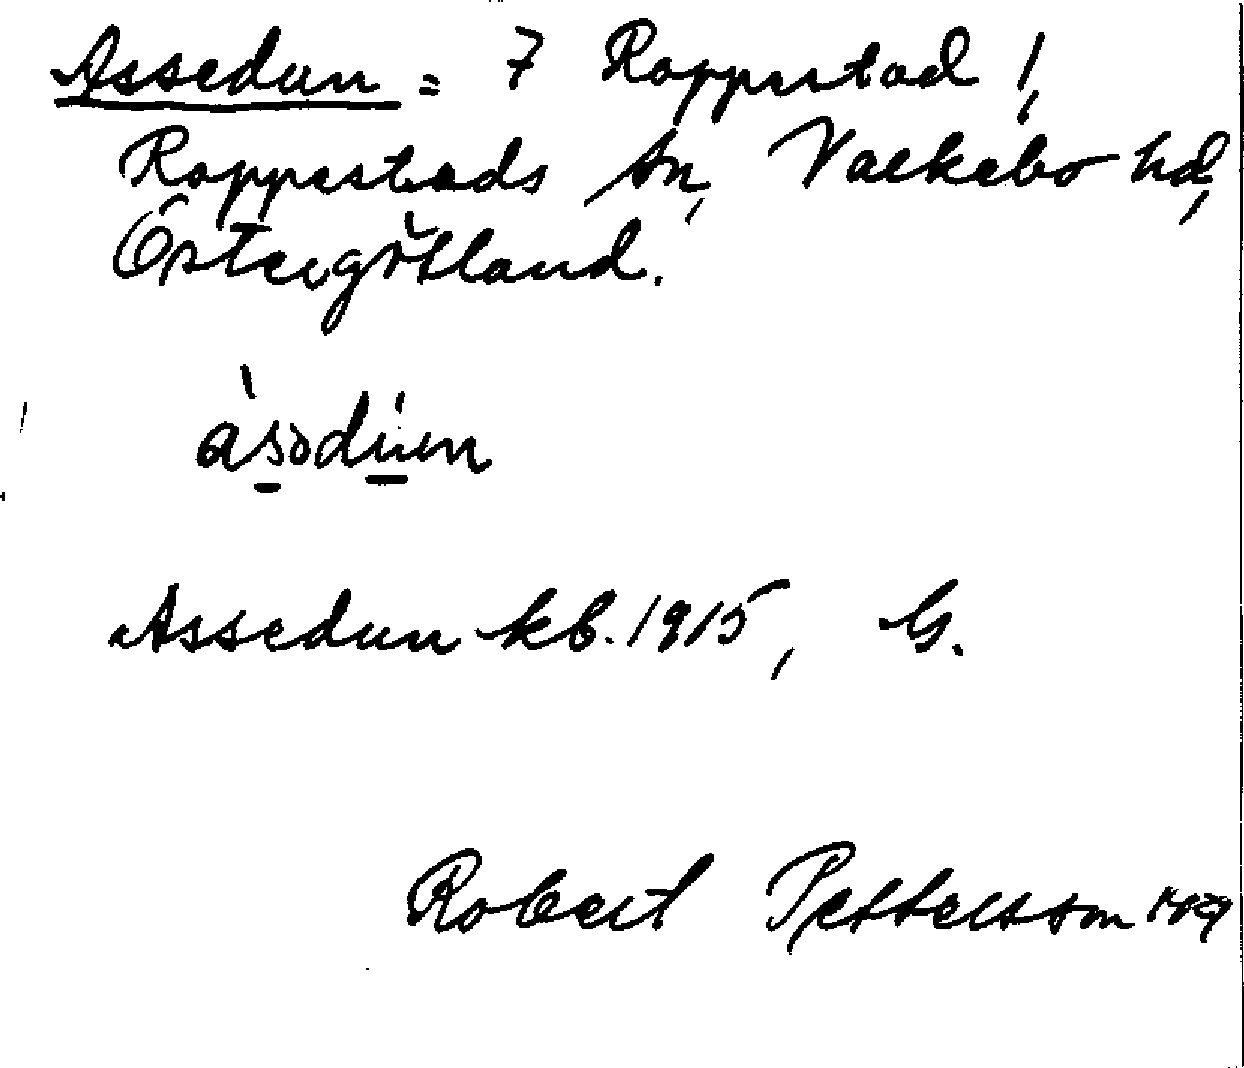 Assedun = 7 Rappestad !,
Rappestads sn, Valkebo hd,
Östergötland.
Assedun kb. 1915, G.
Robert Pettersson